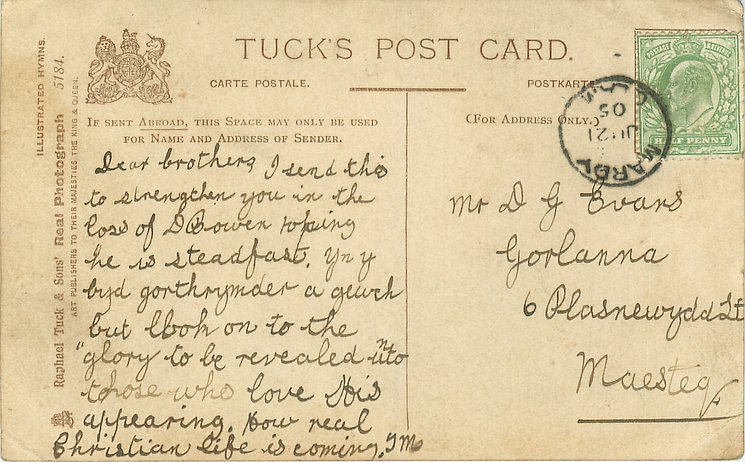 TUCK'S POST CARD.
CARTE POSTALE.
POSTKARTE
IF SENT ABROAD, THIS SPACE MAY ONLY BE USED
FOR NAME AND ADDRESS OF SENDER.
(FOR ADDRESS ONLY.)
ILLUSTRATED HYMNS.
Raphael Tuck & Sons' Real Photograph 5184.
ART PUBLISHERS TO THEIR MAJESTIES THE KING & QUEEN.
Dear brothers, I send this
to strengthen you in the
loss of D Bowen hoping
he is steadfast. Yn y
byd gorthrymder a gewch
but look on to the
"glory to be revealed unto
those who love His
appearing. How real
Christian life is coming. JM
Mr D G Evans
Gorlanna
6 Plasnewydd St
Maesteg
MARDY
JU 21
05
POSTAGE & REVENUE
HALF PENNY